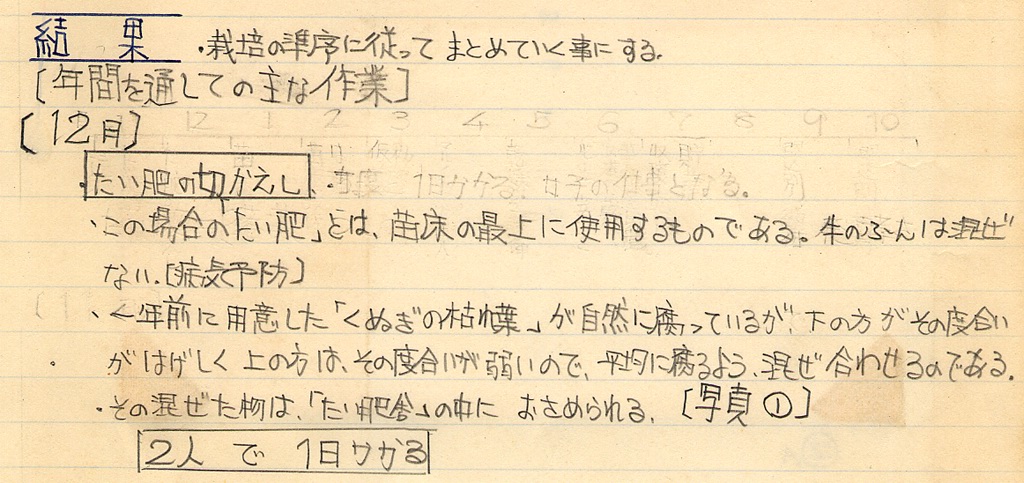 結果 ・栽培の準序に従って まとめていく事にする。
[年間を通しての主な作業]
[12月]
・たい肥の切かえし、
・この場合の「たい肥」とは、苗床の最上に使用するものである。牛のふんは混ぜ
ない.[病気予防]
・一年前に用意した「くぬぎの枯れ葉」が自然に腐っているが、下の方がその度合い
がはげしく上の方は、その度合いが弱いので、平均に腐るよう、混ぜ合わせるのである.
・その混ぜた物は、「たい肥舎」の中に おさめられる. [写真①]
2人で 1日かかる